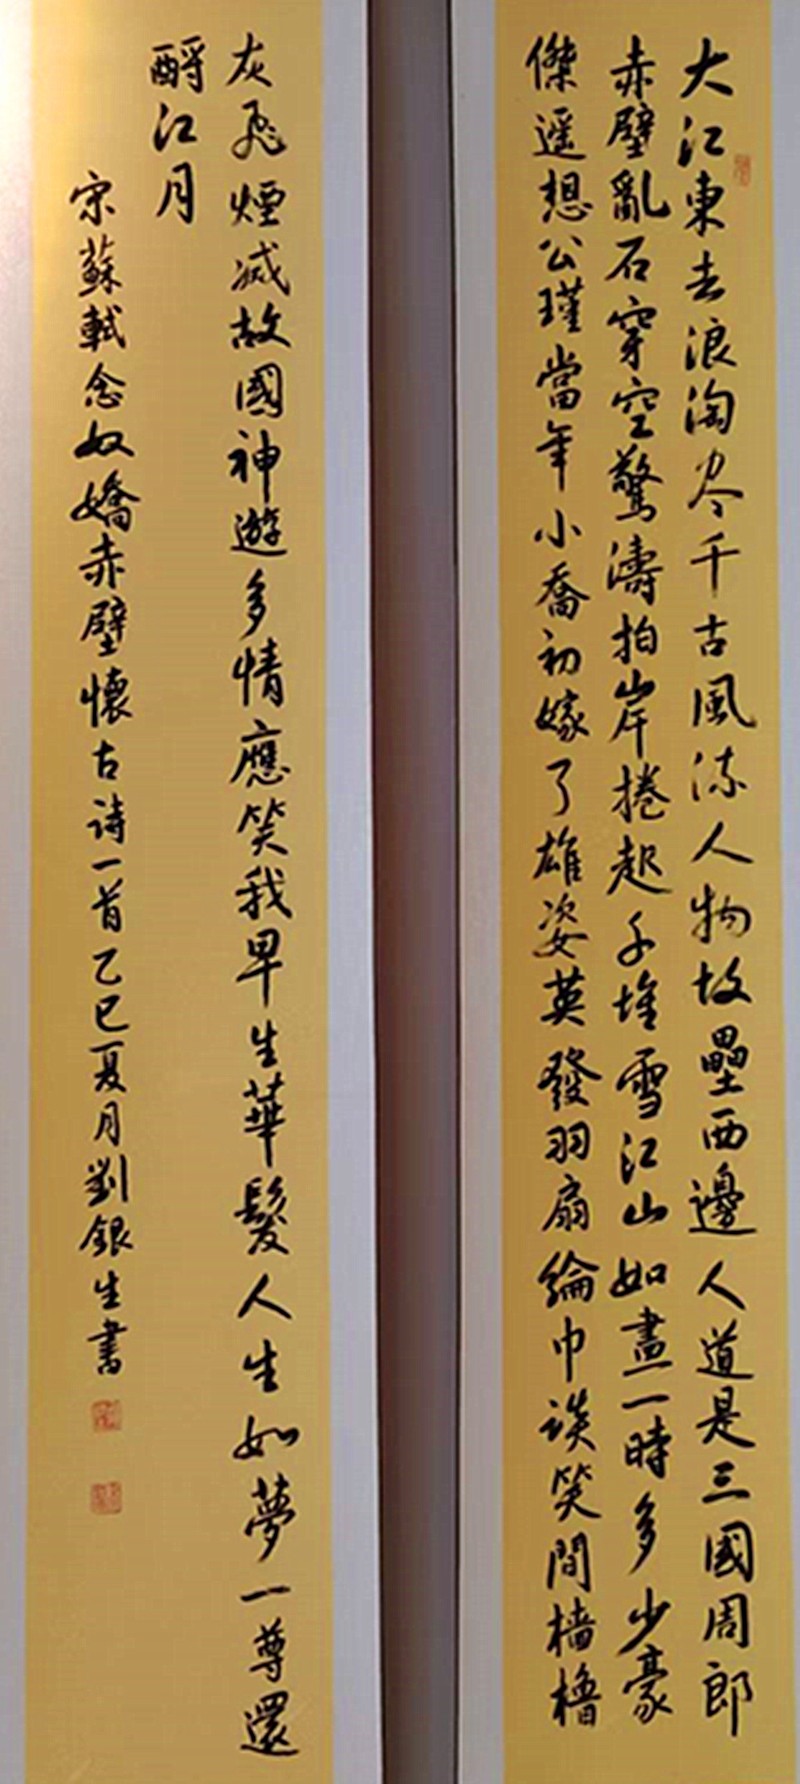 大江東去浪淘尽千古風流人物故壘西邊人道是三國周郎
赤壁亂石穿空驚濤拍岸捲起千堆雪江山如畫一時多少豪
傑遥想公瑾當年小喬初嫁了雄姿英發羽扇綸巾談笑間檣櫓
灰飛煙滅故國神遊多情應笑我早生華髮人生如夢一尊還
酹江月
宋蘇軾念奴嬌赤壁懷古詩一首乙巳夏月劉銀生書